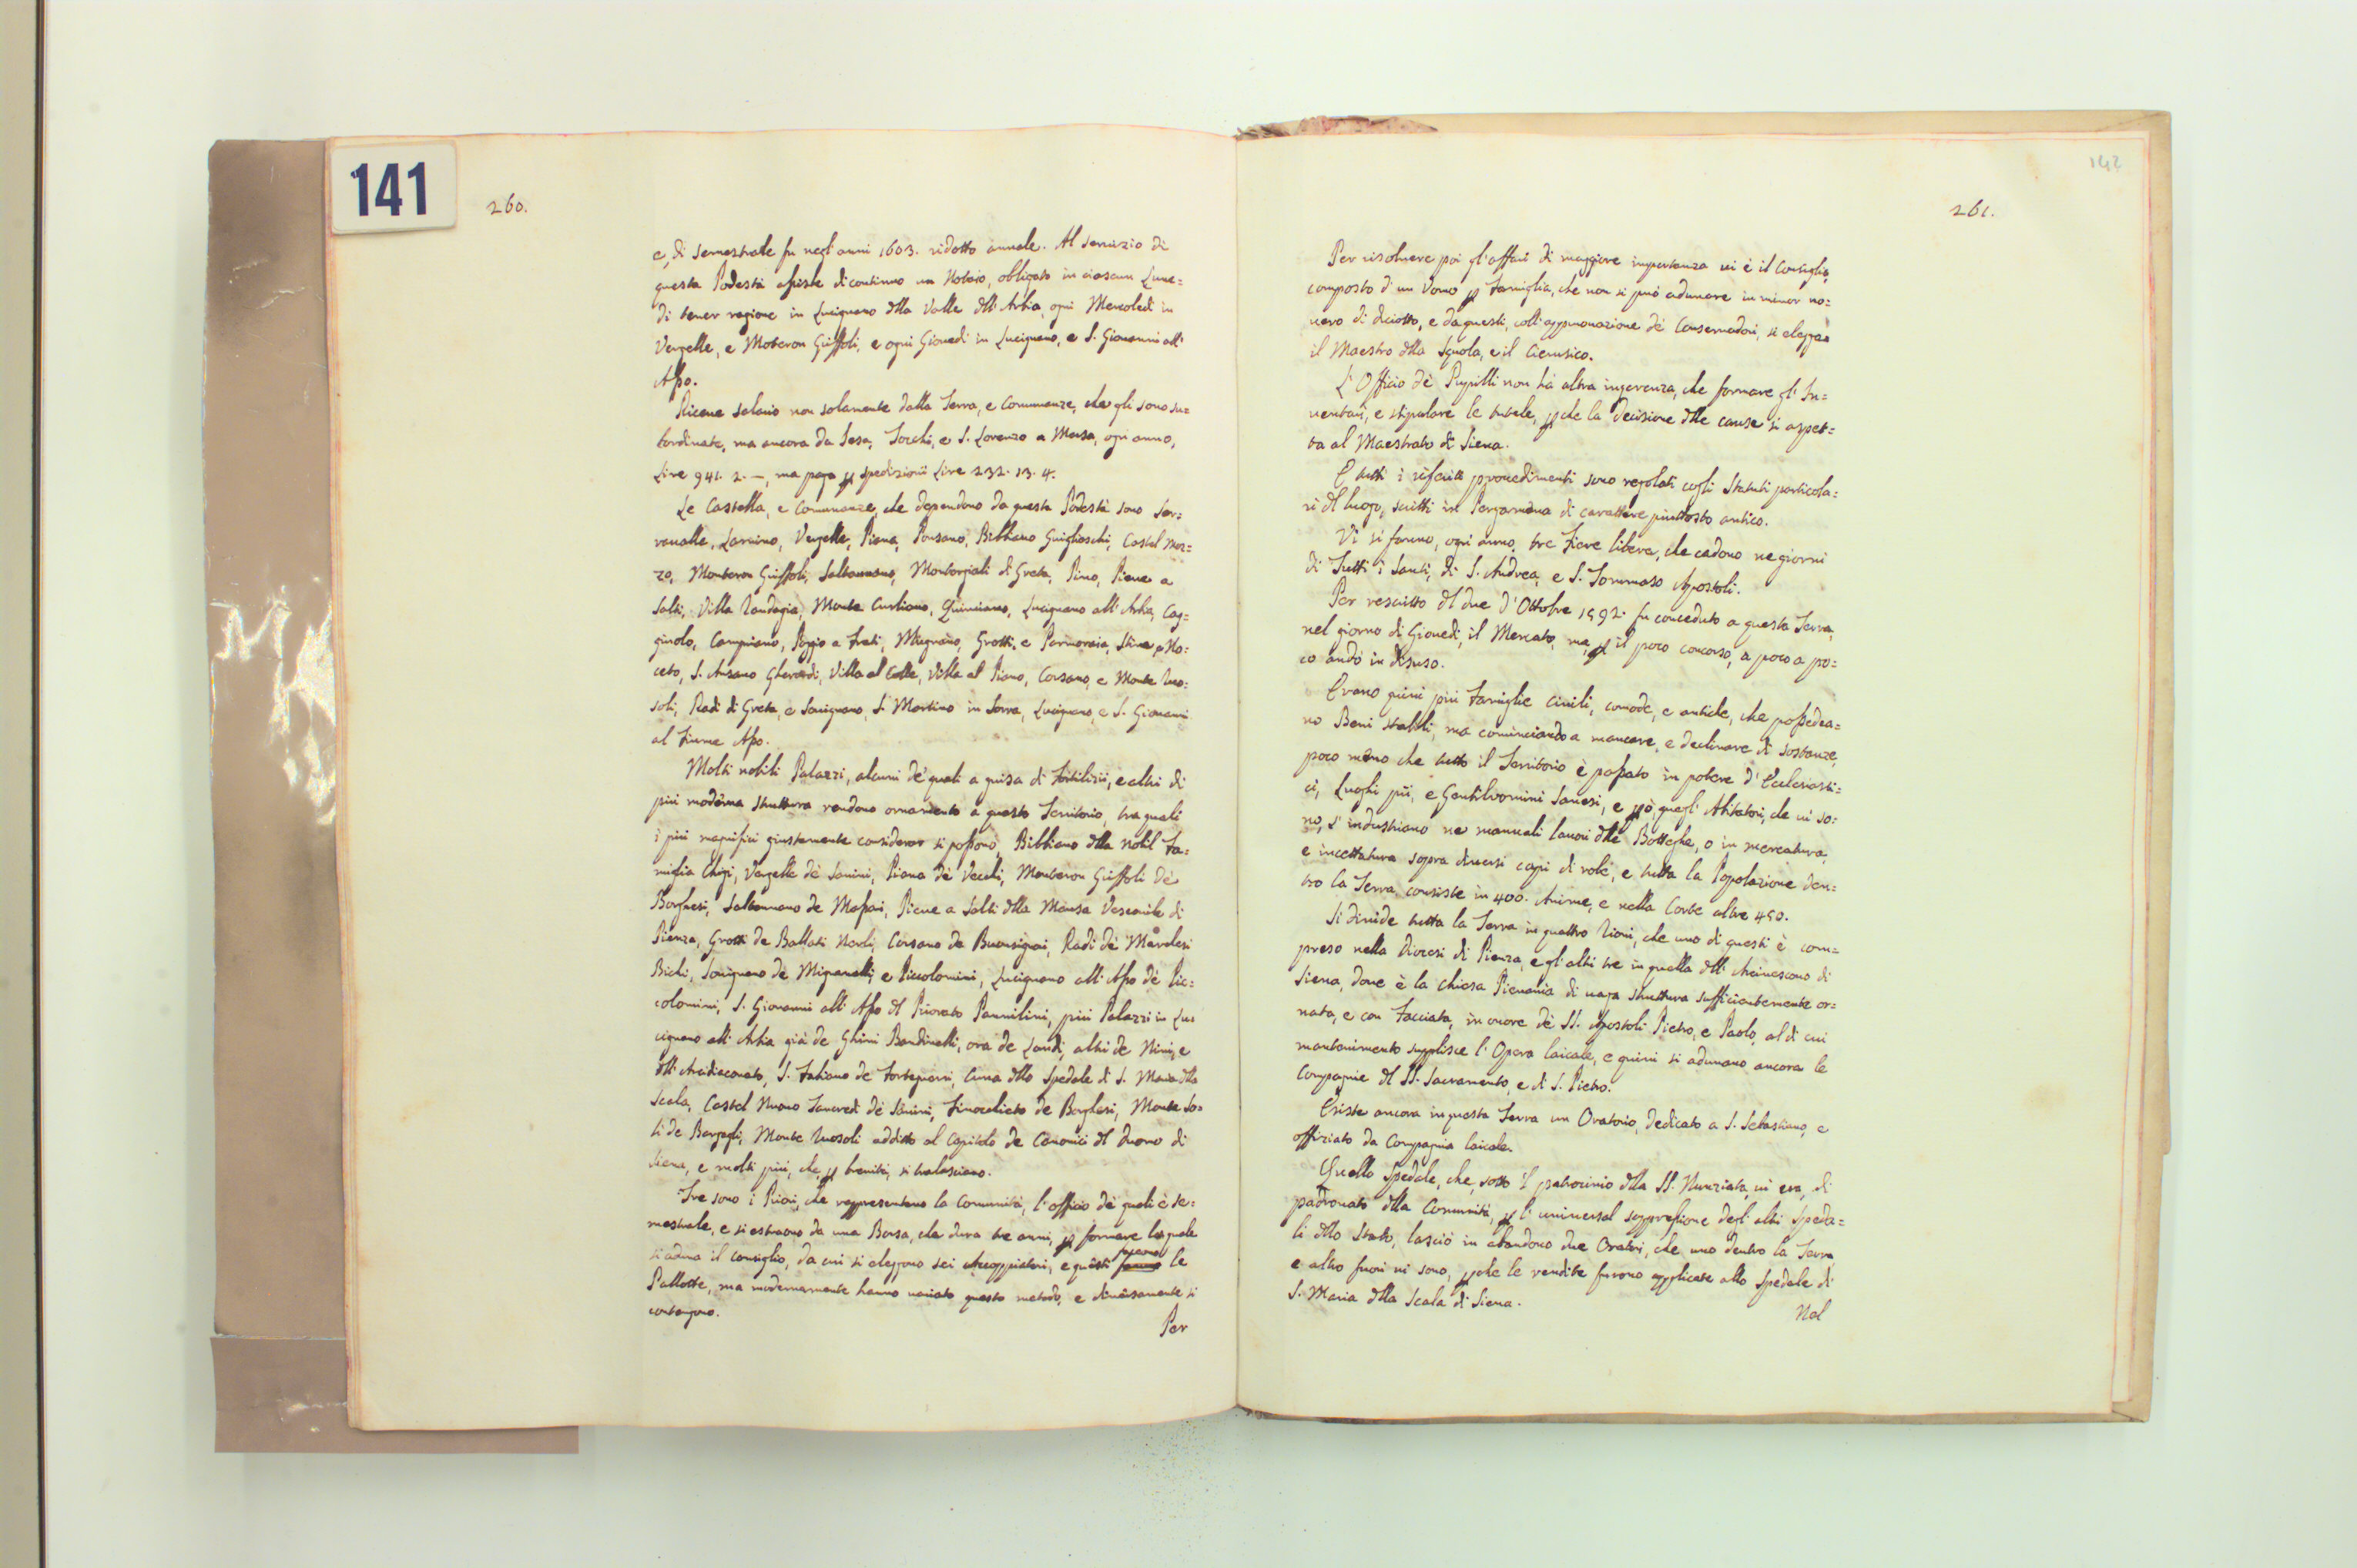 141
260.
e, di semestrale fu negl'anni 1603. ridotto annale. Al seruizio di
questa Podestà assiste di continuo un Notaio, obligato in ciascun Lune=
di tener ragione in Lucignano dlla Valle dll'Arbia, ogni Mercoledi in
Vergelle, e Monteron Griffoli, e ogni Giouedi in Lucignano, e S. Giouanni all'
Asso.
Riceue salario non solamente dalla Terra, e Communanze, che gli sono su=
bordinate, ma ancora da Sesa, Torchi, e S. Lorenzo a Mersa, ogni anno,
Lire 941. 2. –, ma paga p spedizioni Lire 232. 13. 4.
Le Castella, e Comunanze, che dependono da questa Podestà sono Ser=
raualle, Vergelle, Piana, Ponsano, Bibbiano Guiglieschi, Castel Mor=
zo, Monteron Griffoli, Salteano, Montorgiali di Greta, Pino, Pieue a
Salti, Villa Radagia, Monte Curliano, Quinciano, Lucignano all'Arbia, Cag=
gnolo, Campriano, Poggio a Frati, Mugnano, Grotti, e Parnoraia, Stine, No=
ceto, S. Ansano Gherardi, Villa al Colle, Villa al Piano, Corsano, e Monte Luo=
soli, Radi di Greta, e Souignano, S. Martino in Sorra, Lucignano, e S. Giouanni
al Fiume Asso.
Molti nobili Palazzi, alcuni de' quali a guisa di Fortilizii, e altri di
più moderna struttura rendono ornamento a questo Territorio, tra quali
i più magnifici giustamente considerar si possono, Bibbiano dlla nobil Fa=
miglia Chigi, Vergelle dè Sanini, Piana dè Vecchi, Monteron Griffoli dè
Borghesi, Salteano de Massaî, Pieue a Salti dlla Mensa Vescouile di
Pienza, Grotti de Ballati Nerli, Corsano de Buonsignori, Radi dè Marelesi
Bichi, Souignano dè Mignanelli, e Piccolomini, Lucignano all'Asso dè Pic=
colomini, S. Giouanni all'Asso dl Priorato Pannilini, più Palazzi in Lu=
cignano all'Arbia già de Ghini Bandinelli, ora de Landi, altri de Nini, e
dll'Arcidiaconato, S. Fabiano de Forteguerri, Cuna dllo Spedale di S. Maria dlla
Scala, Castel Nuouo Tancredi dè Sanini, Finocchieto de Borghesi, Monte So=
li de Bargagli, Monte Luosoli additto al Capitolo de Canonici dl Duomo di
Siena, e molti più, che p breuità, si tralasciano.
Tre sono i Priori, che rappresentano la Comunità, l'officio dè quali è se=
mestrale, e si estraono da una Borsa, che dura tre anni, p formare la quale
si aduna il Consiglio, da cui si eleggono sei Arroppiatori, e questi faceuano le
Pallotte, ma modernamente hanno uariato questo metodo, e diuersamente si
contengono.
Per
142
261.
Per risoluere poi gl'affari di maggiore importanza ui è il Consiglio,
composto d'un Vomo p Famiglia, che non si può adunare in minor no=
uero di diciotto, e da questi, coll'approuazione dè Conseruadori, si elegga
il Maestro dlla Squola, e il Cierusico.
L'Officio dè Pupilli non hà altra ingerenza, che formare gl'In=
uentarî, e stipulare le tutele, pche la decisione dlle cause si aspet=
ta al Maestrato di Siena.
E tutti i riferiti prouedimenti sono regolati cogli Statuti particola=
ri dl luogo, scritti in Pergamena di carattere piuttosto antico.
Vi si fanno, ogni anno, tre Fiere libere, che cadono ne giorni
di Tutti i Santi, di S. Andrea, e S. Tommaso Apostoli.
Per rescritto dl due d'Ottobre 1592. fu conceduto a questa Terra,
nel giorno di Giouedì, il Mercato, ma, p il poco concorso, a poco a po=
co andò in disuso.
Erano quiui più Famiglie ciuili, comode, e antiche, che possedea=
no Beni stabili, ma cominciando a mancare, e declinare di sostanze,
poco meno che tutto il Territorio è passato in potere d'Ecclesiasti=
ci, Luoghi pii, e Gentiluomini Sanesi, e pò, quegl'Abitatori, che ui so=
no, s'industriano ne manuali lauori dlle Botteghe, o in mercatura,
e incettatura sopra diuersi capi di robe, e tutta la Popolazione den=
tro la Terra consiste in 400. Anime, e nella Corte altre 450.
Si diuide tutta la Terra in quattro Rioni, che uno di questi è com=
preso nella Diocesi di Pienza, e gl'altri tre in quella dll'Arciuescouo di
Siena, doue è la Chiesa Pieuania di uaga struttura sufficientemente or=
nata, e con Facciata, in onore dè SS. Apostoli Pietro, e Paolo, al di cui
mantenimento supplisce l'Opera laicale, e quiui si adunano ancora le
Compagnie dl SS. Sacramento, e di S. Pietro.
Esiste ancora in questa Terra un Oratorio, dedicato a S. Sebastiano, e
offiziato da Compagnia laicale.
Quello Spedale, che, sotto 'l patrocinio dlla SS. Nunziata, ui era, di
padronato dlla Comunità, p l'uniuersal soppressione degl'altri Speda=
li dllo Stato, lasciò in abandono due Oratori, che uno dentro la Terra,
e altro fuori ui sono, pche le rendite furono applicate allo Spedale di
S. Maria dlla Scala di Siena.
Nel